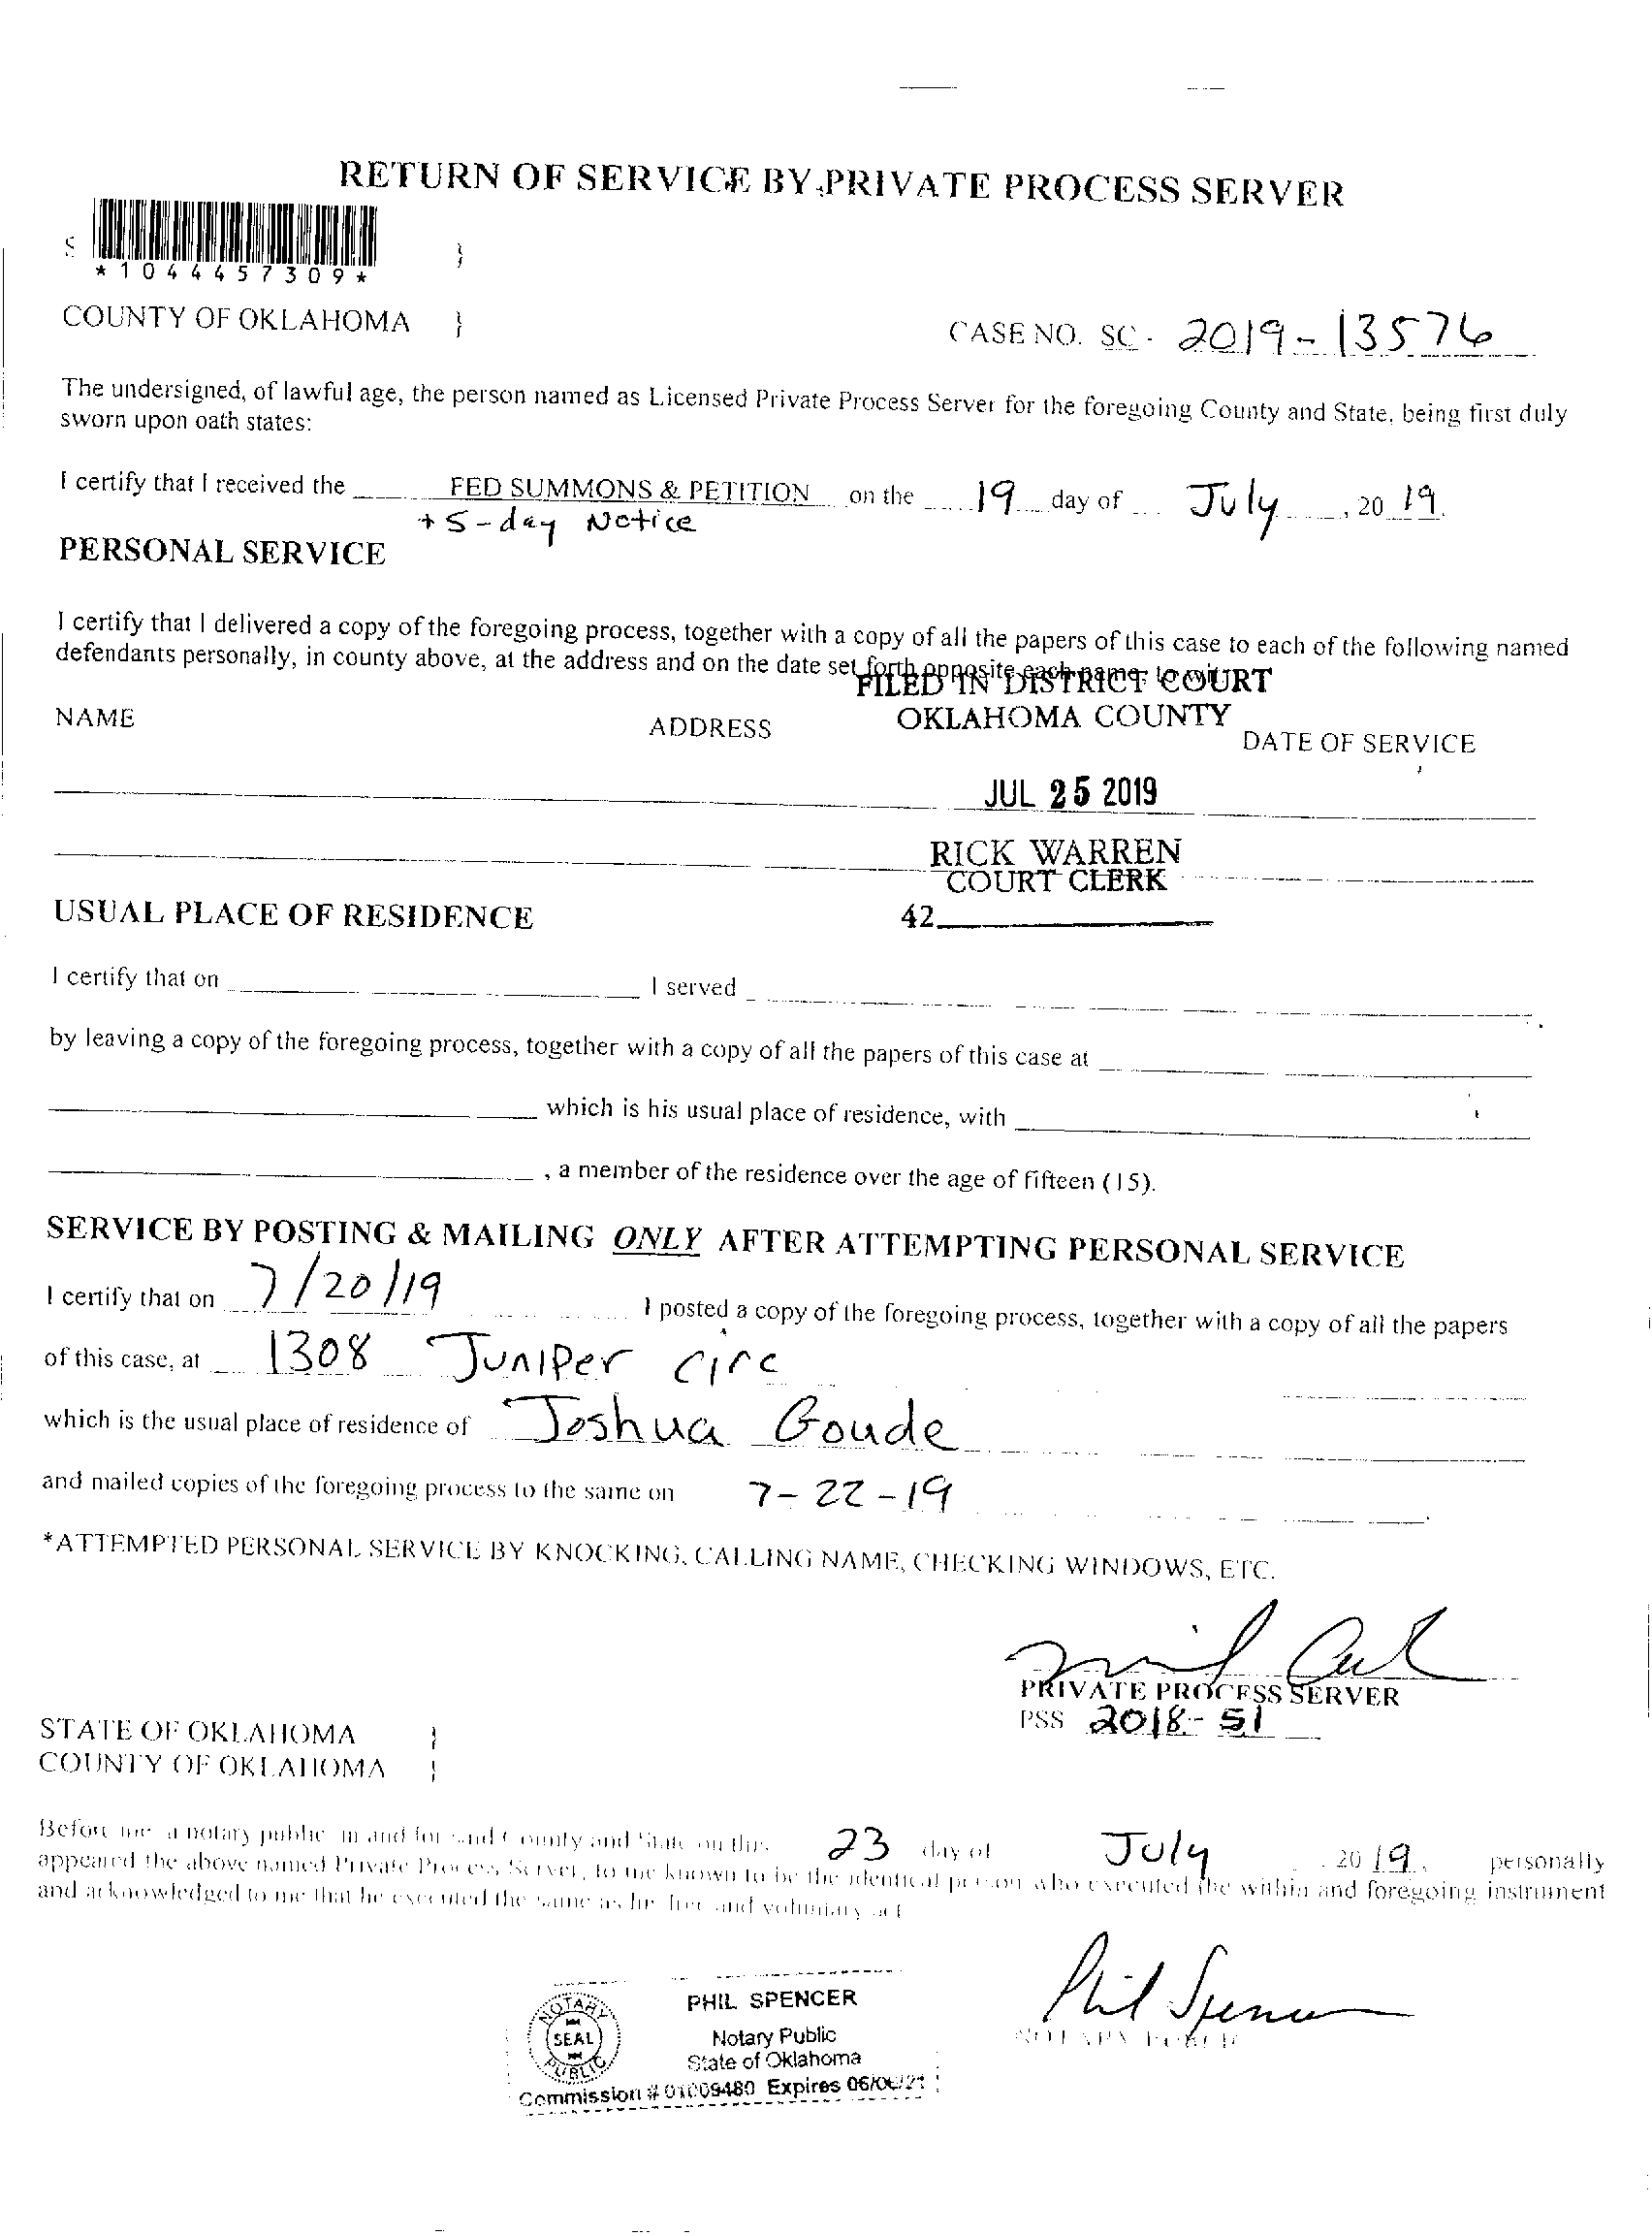 RETURN OF SERVICE BY PRIVATE PROCESS SERVER
S }
*1044457309*
COUNTY OF OKLAHOMA }
CASE NO. SC - 2019-13576
The undersigned, of lawful age, the person named as Licensed Private Process Server for the foregoing County and State, being first duly
sworn upon oath states:
I certify that I received the FED SUMMONS & PETITION on the 19 day of July, 2019.
+ 5-day Notice
PERSONAL SERVICE
I certify that I delivered a copy of the foregoing process, together with a copy of all the papers of this case to each of the following named
defendants personally, in county above, at the address and on the date set forth opposite each name, to wit:
FILED IN DISTRICT COURT
OKLAHOMA COUNTY
NAME ADDRESS DATE OF SERVICE
JUL 25 2019
RICK WARREN
COURT CLERK
42
USUAL PLACE OF RESIDENCE
I certify that on I served
by leaving a copy of the foregoing process, together with a copy of all the papers of this case at
which is his usual place of residence, with
, a member of the residence over the age of fifteen (15).
SERVICE BY POSTING & MAILING ONLY AFTER ATTEMPTING PERSONAL SERVICE
I certify that on 7/20/19 I posted a copy of the foregoing process, together with a copy of all the papers
of this case, at 1308 Juniper Circ
which is the usual place of residence of Joshua Goude
and mailed copies of the foregoing process to the same on 7-22-19
*ATTEMPTED PERSONAL SERVICE BY KNOCKING, CALLING NAME, CHECKING WINDOWS, ETC.
PRIVATE PROCESS SERVER
PSS 2018-51
STATE OF OKLAHOMA }
COUNTY OF OKLAHOMA }
Before me a notary public in and for said County and State on this 23 day of July, 2019, personally
appeared the above named Private Process Server, to me known to be the identical person who executed the within and foregoing instrument
and acknowledged to me that he executed the same as his free and voluntary act
Phil Spencer
NOTARY PUBLIC
NOTARY
SEAL
PUBLIC
PHIL SPENCER
Notary Public
State of Oklahoma
Commission # 01009480 Expires 06/06/21